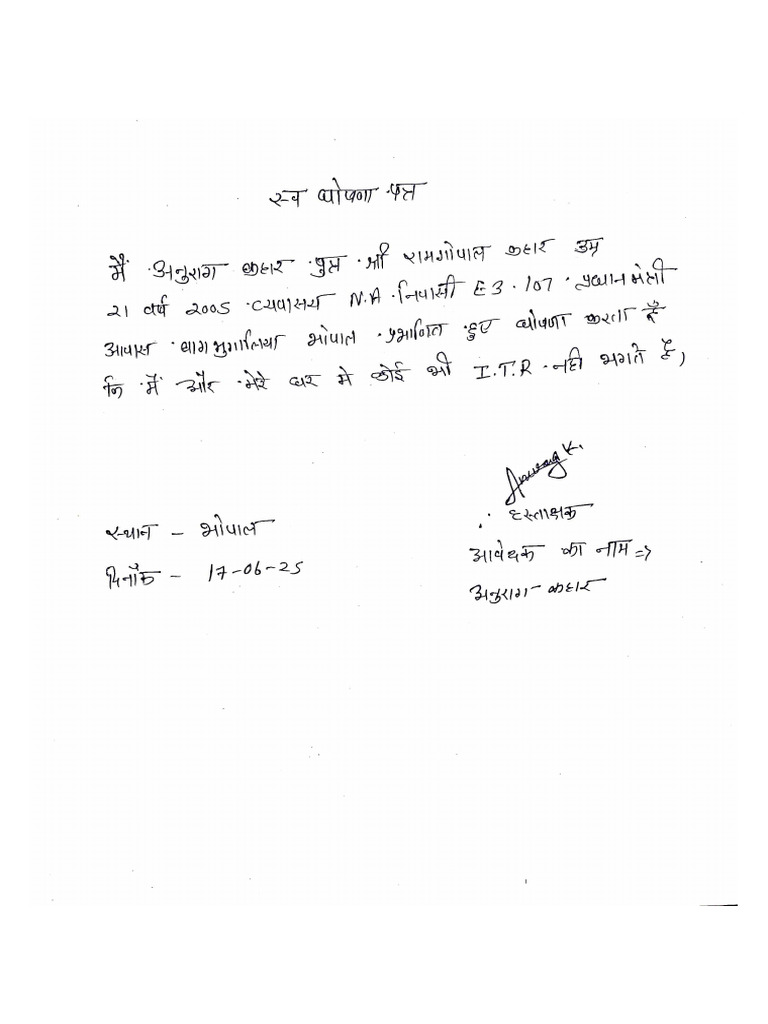 स्व घोषणा पत्र
मैं अनुराग कहार पुत्र श्री रामगोपाल कहार उम्र
21 वर्ष 2005 व्यवासय N.A. निवासी E3.107 प्रधान मंत्री
आवास बाग मुगालिया भोपाल प्रमानित हुए घोषणा करता हूँ
कि में और मेरे घर मे कोई भी I.T.R नही भरते है,
Anurag K.
हस्ताक्षक
स्थान - भोपाल
आवेदक का नाम =>
दिनाँक - 17-06-25
अनुराग कहार